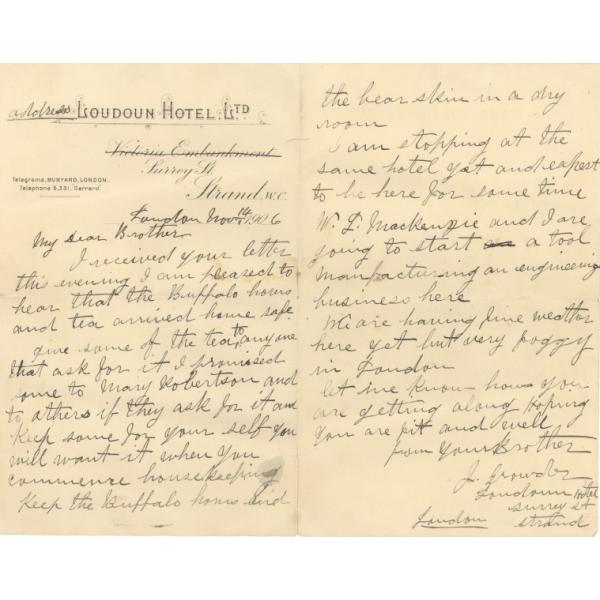 address. LOUDOUN HOTEL, LTD
Victoria Embankment
Surrey St.
Strand. W.C.
Telegrams, BUNYARD, LONDON.
Telephone 5,331, "Gerrard."
London Nov. 1st, 1906
My Dear Brother
I received your letter
this evening I am pleased to
hear that the Buffalo horns
and tea arrived home safe.
give some of the tea, to anyone
that ask for it I promised
some to Mary Robertson and
to others if they ask for it and
Keep some for your self you
will want it when you
commence housekeeping
Keep the Buffalo horns and
the bear skin in a dry
room
I am stopping at the
same hotel yet and expect
to be here for some time
W. D. Mackenzie and I are
going to start a tool
manfacturing an engineering
business here
We are having fine weather
here yet but very foggy
in London
let me know how you
are getting along Hoping
you are fit and well
from Your Brother
J. Crowder
Loudoun Hotel
Surrey St
Strand
London